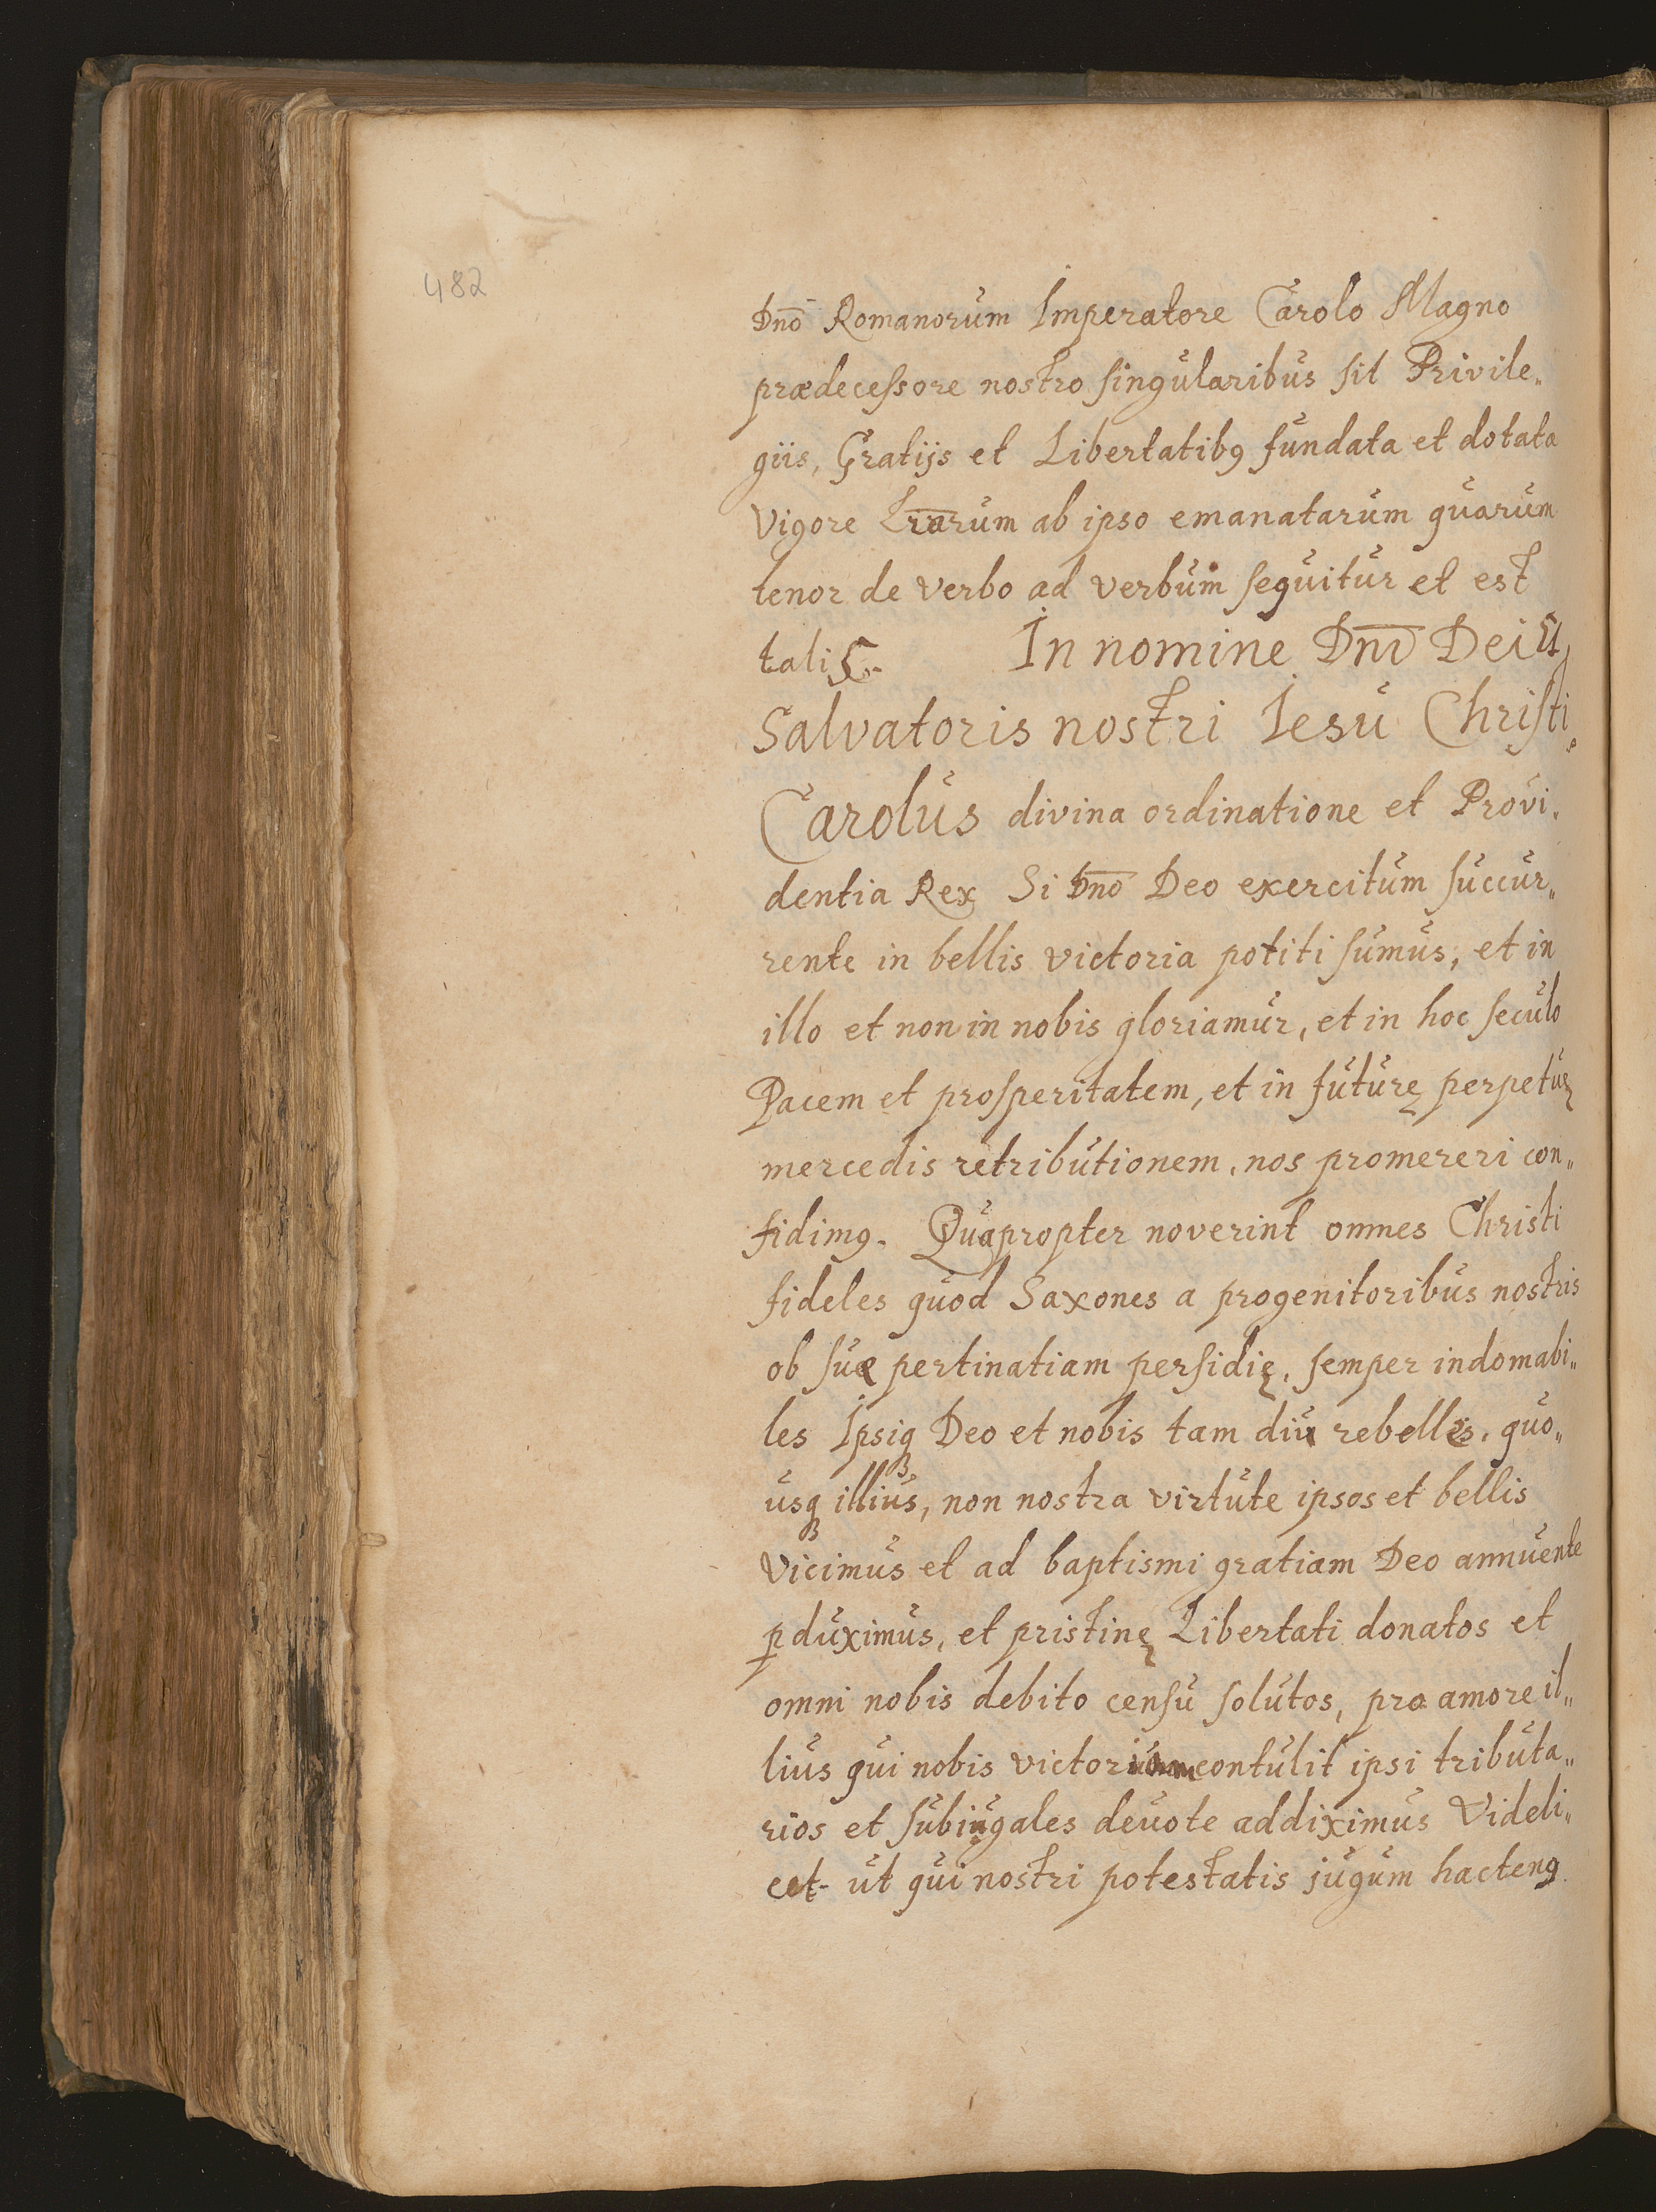 482
Dnō Romanorum Imperatore Carolo Magno
prædeceſsore nostro ſingularibus ſit Privile„
giis, Gratijs et Libertatibꝰ fundata et dotata
Vigore Lr̄arum ab ipso emanatarum quarum
tenor de verbo ad verbum ſequitur et est
talis. In nomine Dnī Dei et
Salvatoris nostri Iesu Chriſti.
Carolus divina ordinatione et Provi.
dentia Rex Si Dnō Deo exercitum ſuccur„
rente in bellis victoria potiti ſumus, et in
illo et non in nobis gloriamur, et in hoc ſeculo
Pacem et proſperitatem, et in futurę perpetuę
mercedis retributionem, nos promereri con„
fidimꝰ. Quapropter noverint omnes Christi
fideles quod Saxones a progenitoribus nostris
ob ſuæ pertinatiam perfidię, ſemper indomabi„
les Ipsiqꝫ Deo et nobis tam diu rebelles, quo„
usqꝫ illius, non nostra virtute ipsos et bellis
Vicimus et ad baptismi gratiam Deo annuente
ꝑduximus, et pristinę Libertati donatos et
omni nobis debito cenſu ſolutos, pro amore il„
lius qui nobis victoriam contulit ipsi tributa„
rios et ſubiugales devote addiximus Videli„
cet ut qui nostri potestatis jugum hactenꝰ